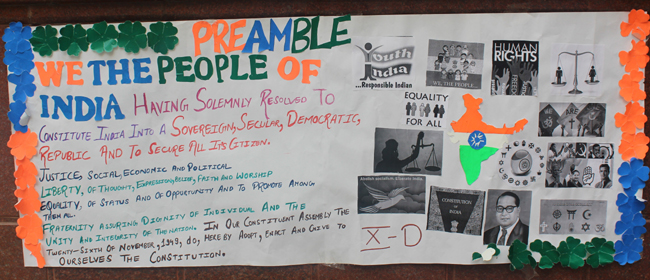 PREAMBLE
WE THE PEOPLE OF
INDIA HAVING SOLEMNLY RESOLVED TO
CONSTITUTE INDIA INTO A SOVEREIGN, SECULAR, DEMOCRATIC,
REPUBLIC AND TO SECURE ALL ITS CITIZEN.
JUSTICE, SOCIAL, ECONOMIC AND POLITICAL
LIBERTY, OF THOUGHT, EXPRESSION, BELIEF, FAITH AND WORSHIP
EQUALITY, OF STATUS AND OF OPPORTUNITY AND TO PROMOTE AMONG
THEM ALL.
FRATERNITY ASSURING DIGNITY OF INDIVIDUAL AND THE
UNITY AND INTEGRITY OF THE NATION. IN OUR CONSTITUENT ASSEMBLY THE
TWENTY-SIXTH OF NOVEMBER, 1949, DO, HERE BY ADOPT, ENACT AND GIVE TO
OURSELVES THE CONSTITUTION.
Youth
India
...Responsible Indian
WE, THE PEOPLE...
HUMAN
RIGHTS
FREEDOM
EQUALITY
FOR ALL
CONSTITUTION
OF
INDIA
WE
ARE
X-D